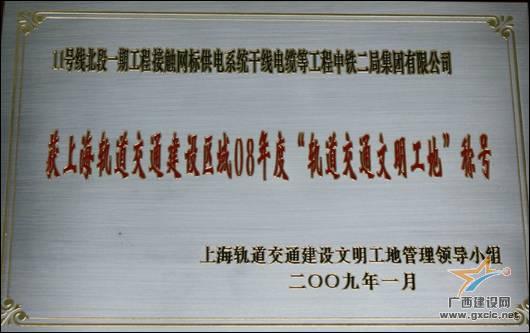 11号线北段一期工程接触网标供电系统干线电缆等工程中铁二局集团有限公司
获上海轨道交通建设区域08年度“轨道交通文明工地”称号
上海轨道交通建设文明工地管理领导小组
二〇〇九年一月
广西建设网
www.gxcic.net